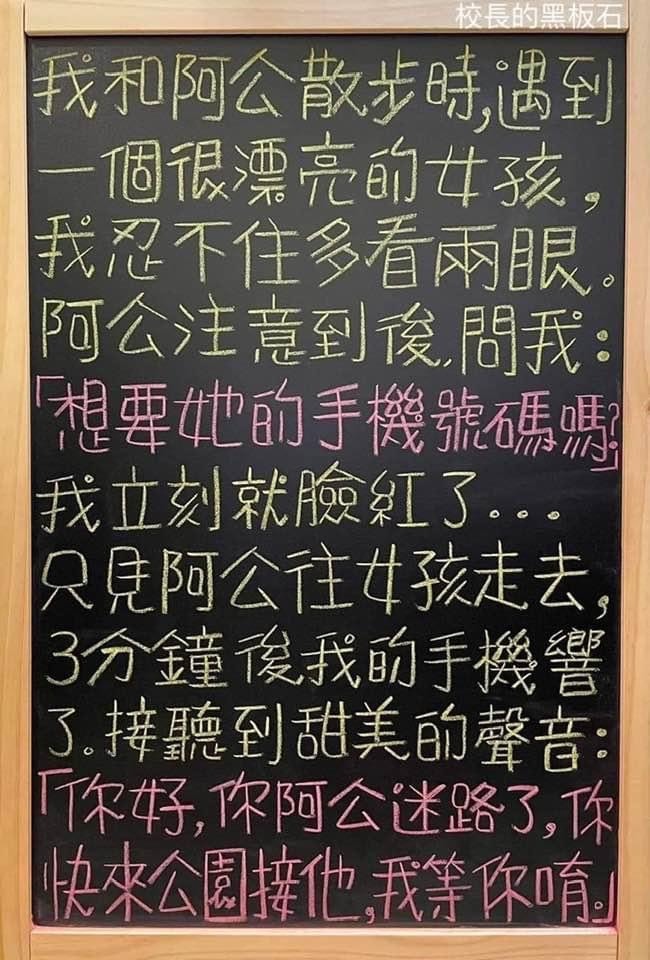 校長的黑板石
我和阿公散步時,遇到
一個很漂亮的女孩,
我忍不住多看兩眼。
阿公注意到後,問我:
「想要她的手機號碼嗎?」
我立刻就臉紅了...
只見阿公往女孩走去,
3分鐘後我的手機響
了。接聽到甜美的聲音:
「你好,你阿公迷路了,你
快來公園接他,我等你唷。」